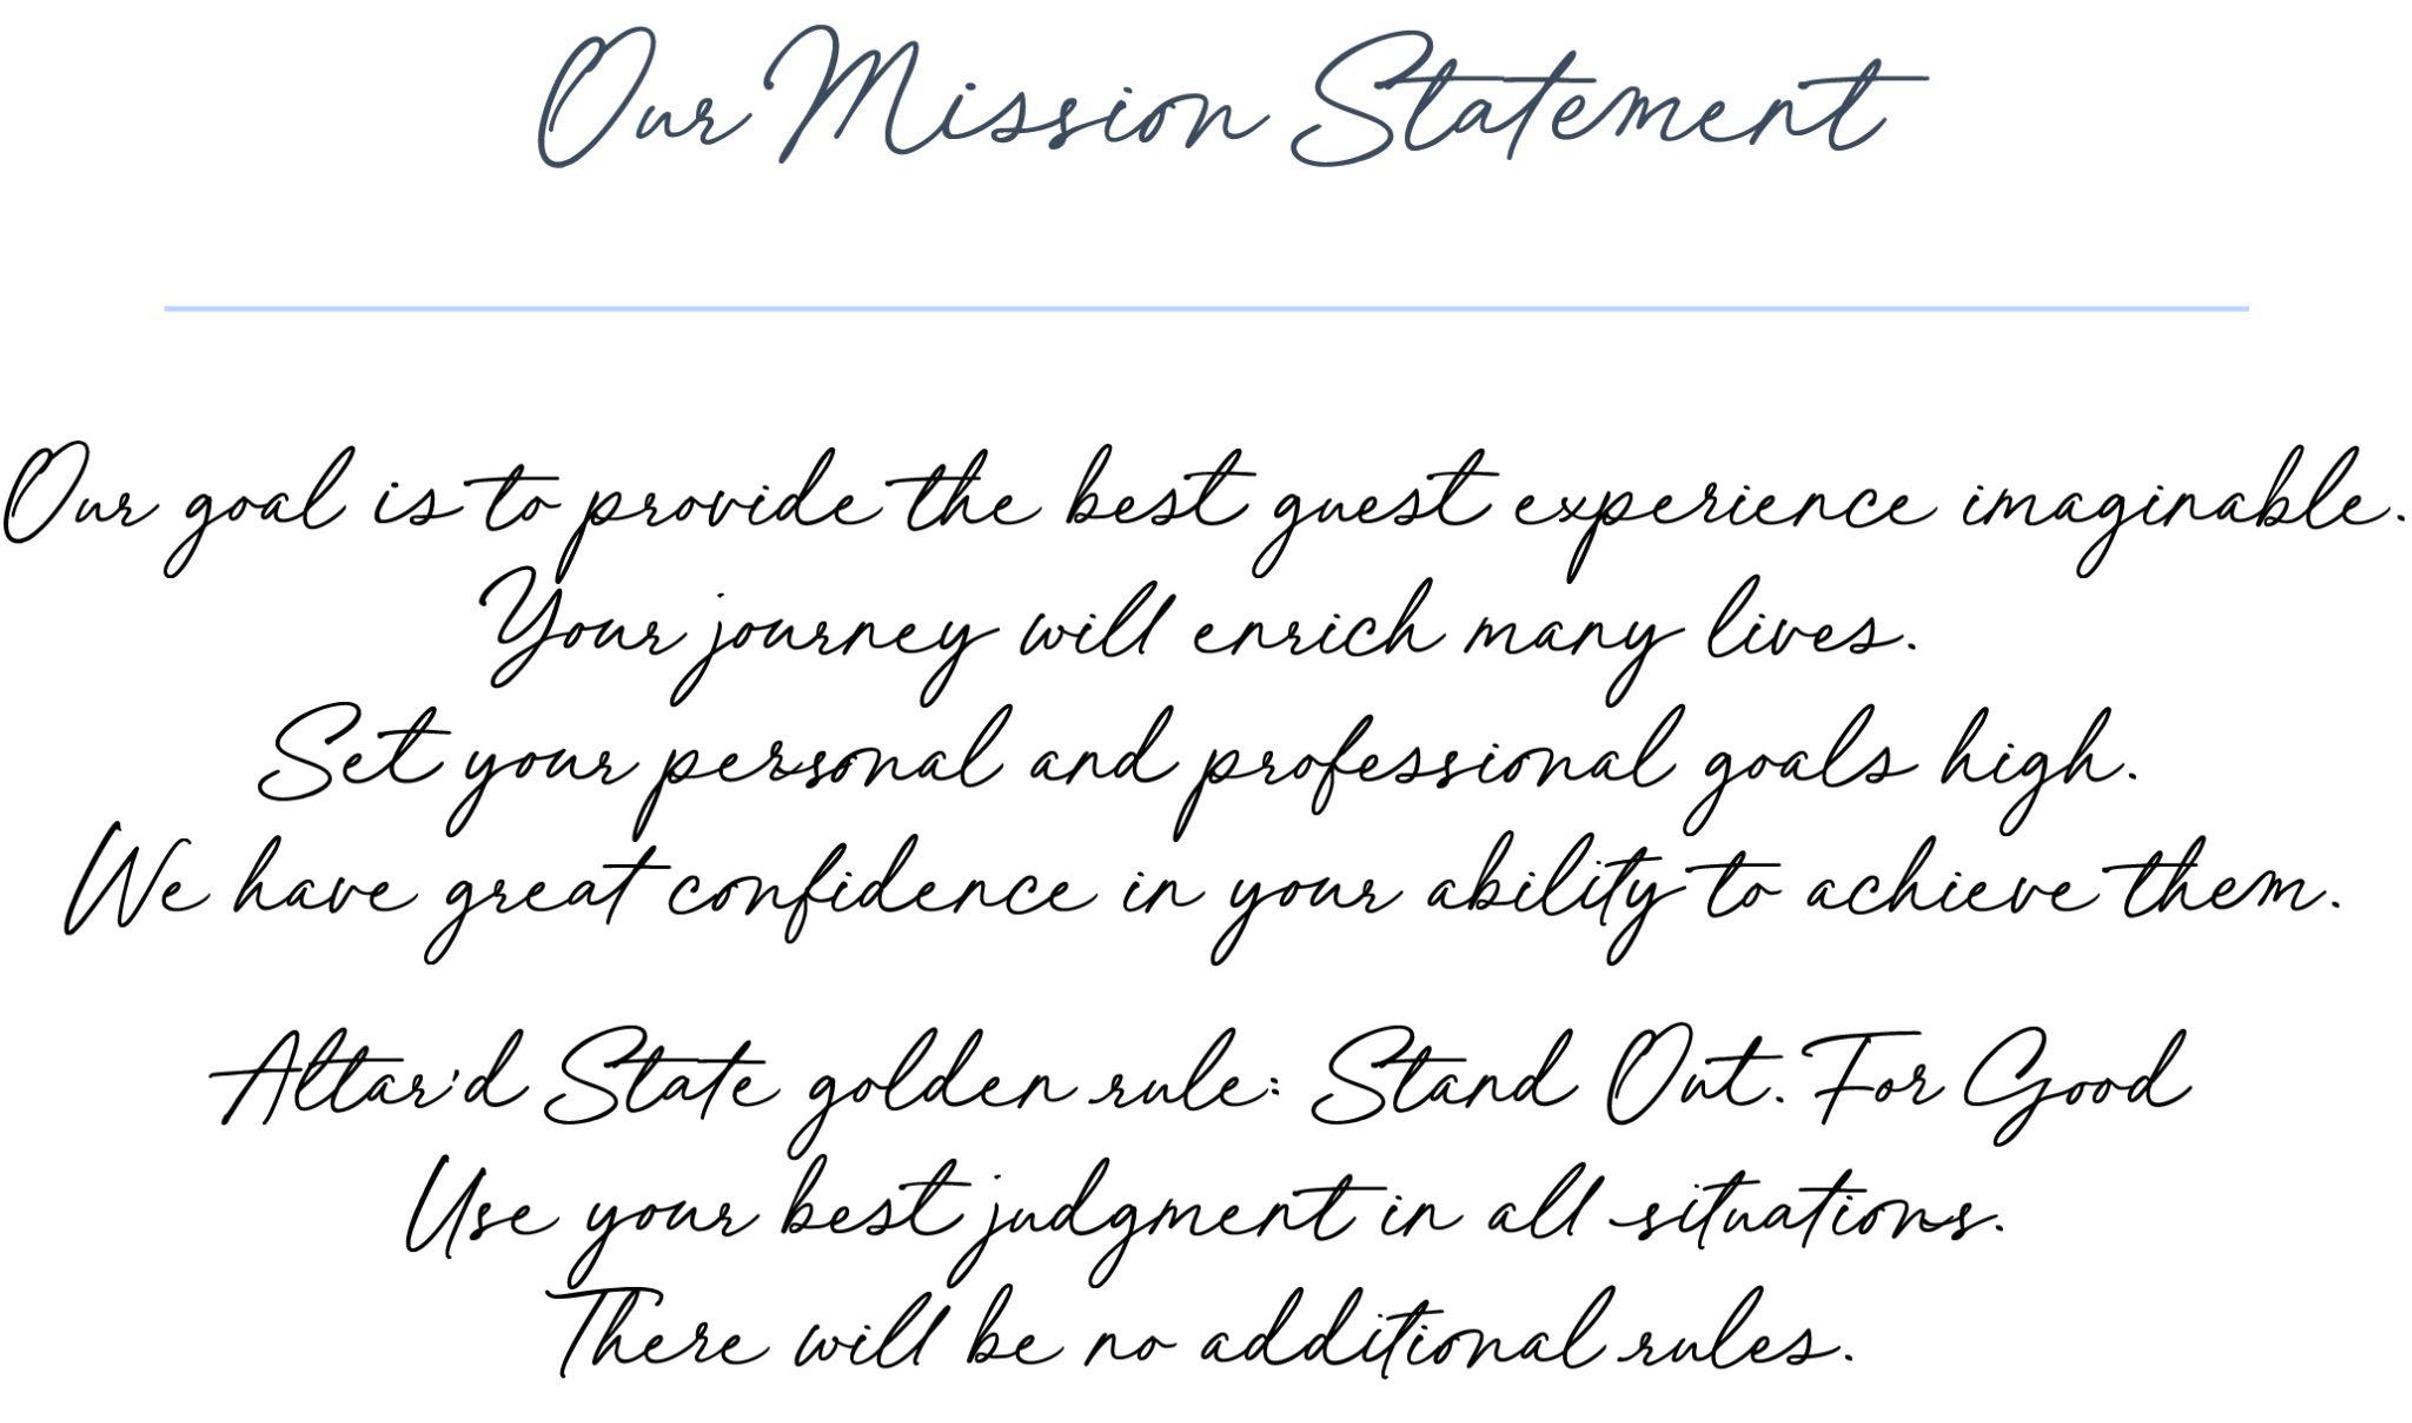 Our Mission Statement
Our goal is to provide the best guest experience imaginable.
Your journey will enrich many lives.
Set your personal and professional goals high.
We have great confidence in your ability to achieve them.
Altar'd State golden rule: Stand Out. For Good
Use your best judgment in all situations.
There will be no additional rules.